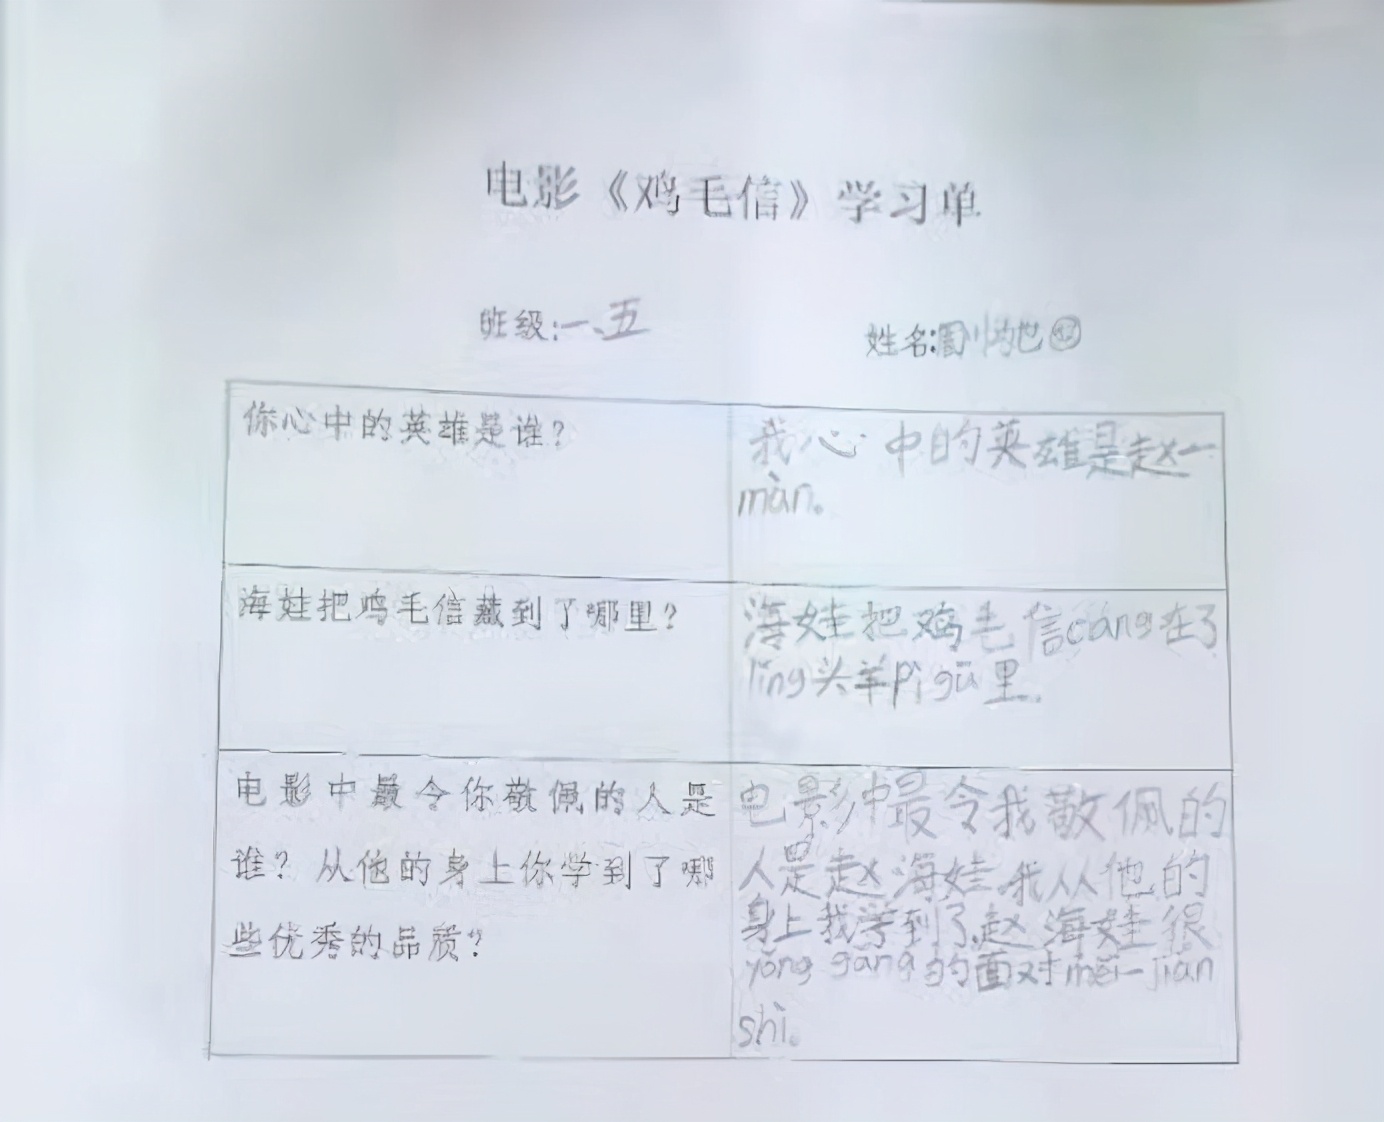 电影《鸡毛信》学习单
班级:一、五
姓名:
你心中的英雄是谁?
我心中的英雄是赵一
màn。
海娃把鸡毛信藏到了哪里?
海娃把鸡毛信cáng在了
lǐng头羊pì gu里。
电影中最令你敬佩的人是
谁?从他的身上你学到了哪
些优秀的品质?
电影中最令我敬佩的
人是赵海娃,我从他的
身上我学到了,赵海娃很
yǒng gǎn的面对měi一jiàn
shì。